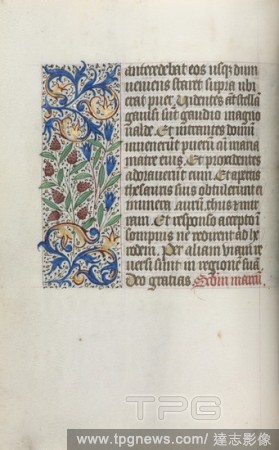 antecedebat eos usq dum
veniens staret supra ubi
erat puer. Videntes autē stellā
gavisi sūt gaudio magno
valde. Et intrantes domū
invenerūt puerū cū maria
matre eius. Et procidentes
adoraverūt eum. Et apertis
thesauris suis obtulerunt ei
munera. aurum. thus & mir
ram. Et responso accepto ī
sompnis ne redirent ad he
rodem. Per aliam viam re
versi sunt in regionē suā.
Deo gratias.
TPG
www.tpgnews.com/達志影像